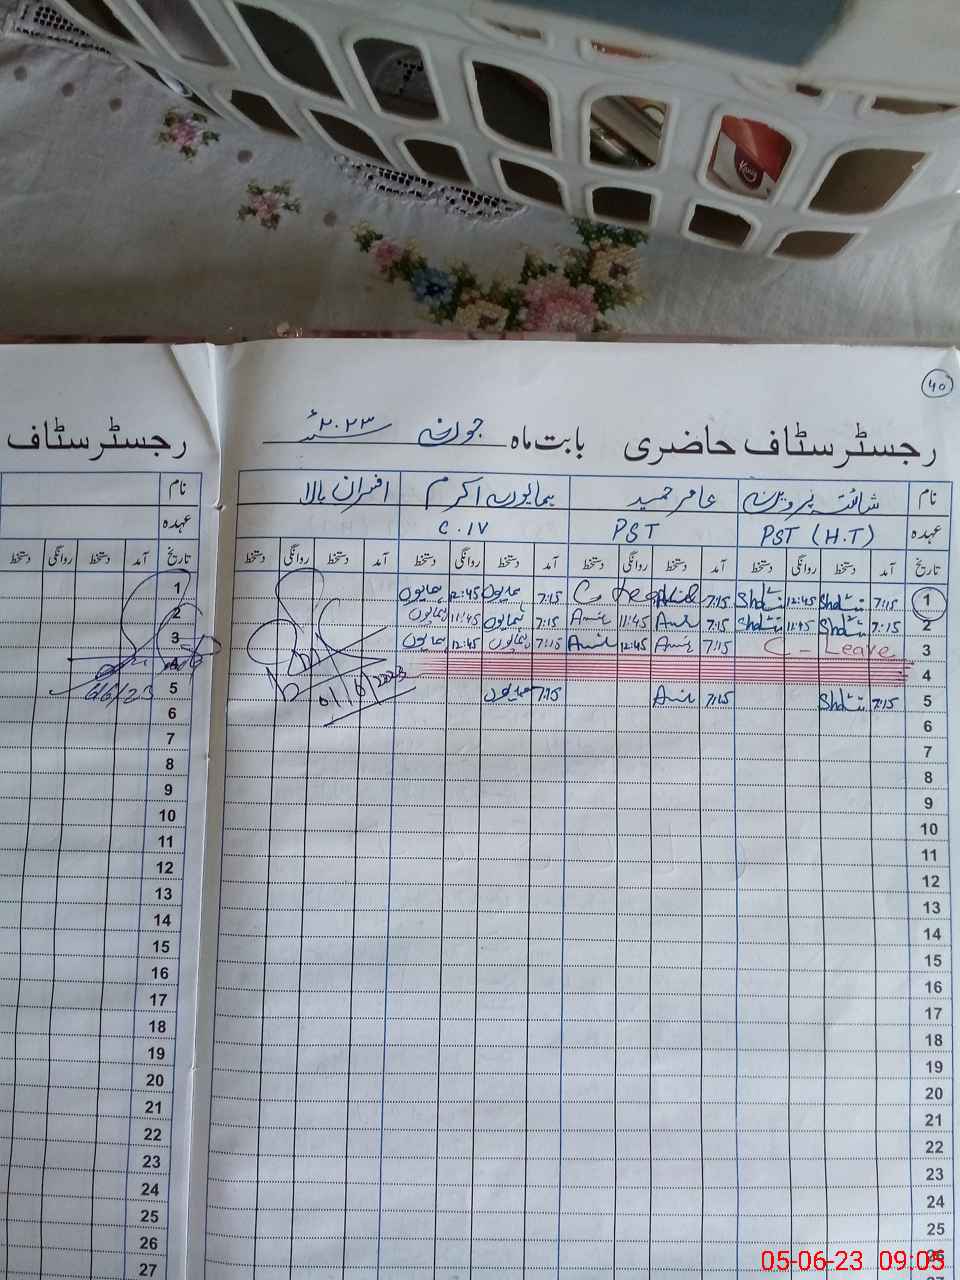 40
رجسٹر سٹاف حاضری بابت ماہ جون ۲۰۲۳ء
نام شائستہ پروین عامر حمید ہمایوں اکرم افسران بالا
عہدہ PST (H.T) PST C.IV
تاریخ آمد دستخط روانگی دستخط آمد دستخط روانگی دستخط آمد دستخط روانگی دستخط آمد دستخط روانگی دستخط
1 7:15 12:45 7:15 7:15 ہمایوں 12:45 ہمایوں
2 7:15 11:45 7:15 Amir 11:45 Amir 7:15 ہمایوں 11:45 ہمایوں
3 C - Leave 7:15 Amir 12:45 Amir 7:15 ہمایوں 12:45 ہمایوں
4
5 7:15 7:15 Amir 7:15 ہمایوں
6
7
8
9
10
11
12
13
14
15
16
17
18
19
20
21
22
23
24
25
26
27
رجسٹر سٹاف
نام
عہدہ
تاریخ آمد دستخط روانگی دستخط
1
2
3
4
5
6
7
8
9
10
11
12
13
14
15
16
17
18
19
20
21
22
23
24
25
26
27
05-06-23 09:03